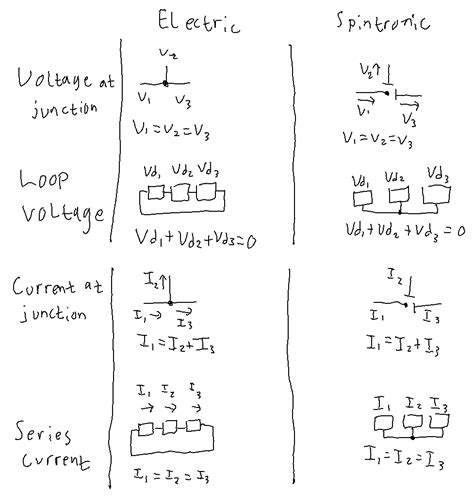 Electric Spintronic
Voltage at junction
V₂
V₁ V₃
V₁=V₂=V₃
V₂↑
V₁ V₃
V₁=V₂=V₃
Loop Voltage
Vd₁ Vd₂ Vd₃
Vd₁+Vd₂+Vd₃=0
Vd₁ Vd₂ Vd₃
Vd₁+Vd₂+Vd₃=0
Current at junction
I₂↑
I₁→ I₃
I₁=I₂+I₃
I₂
I₁ I₃
I₁=I₂+I₃
Series Current
I₁ I₂ I₃
→ → →
I₁=I₂=I₃
I₁ I₂ I₃
I₁=I₂=I₃